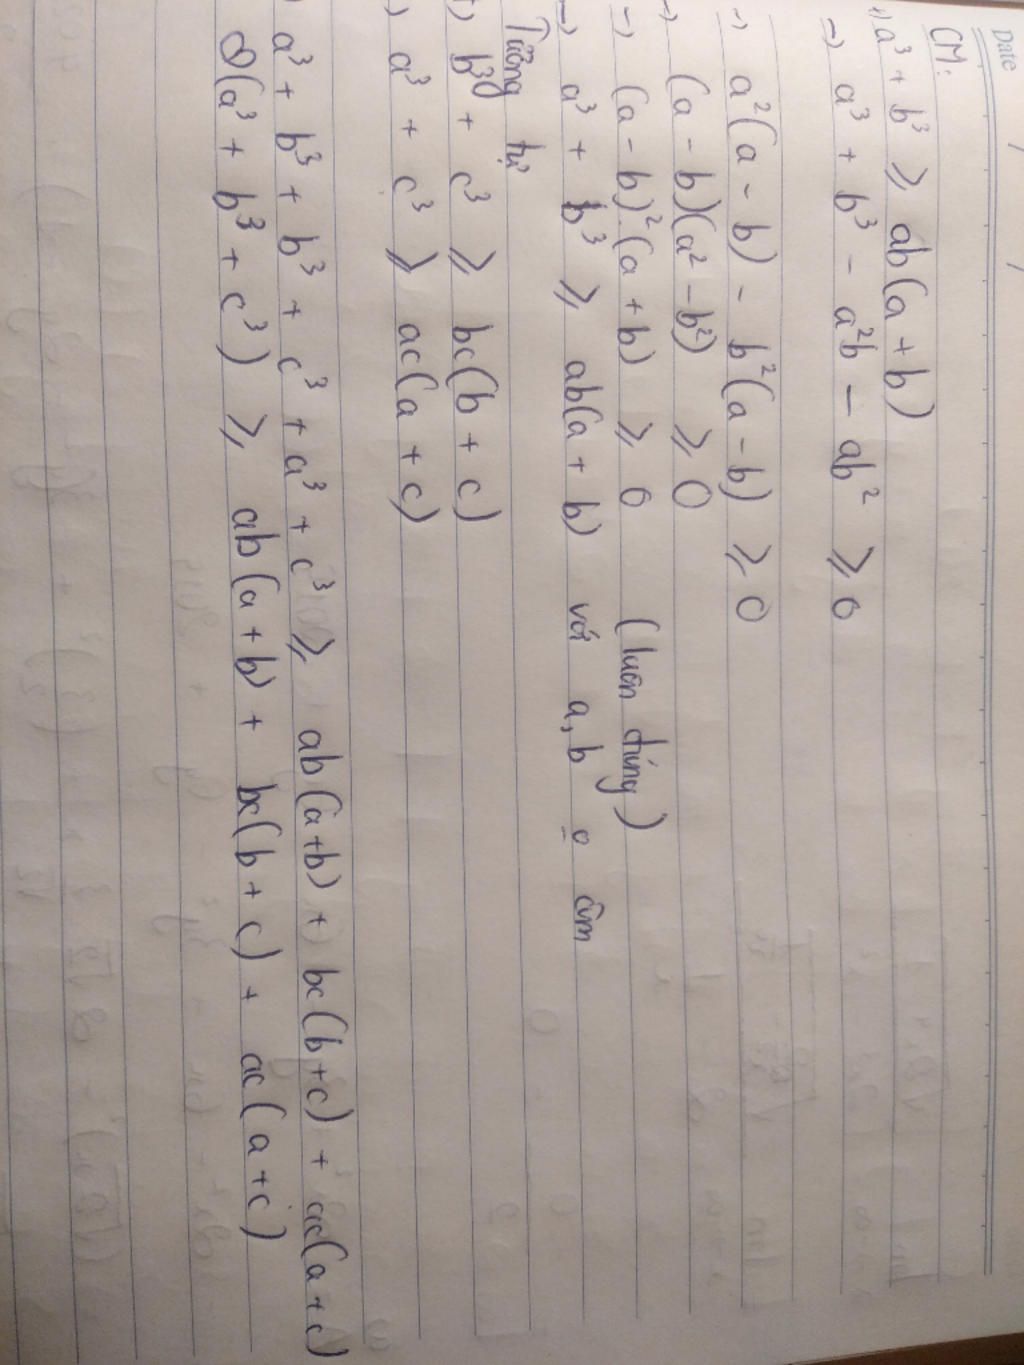 Date / /
CM:
1) a³ + b³ ≥ ab(a + b)
→ a³ + b³ - a²b - ab² ≥ 0
→ a²(a - b) - b²(a - b) ≥ 0
→ (a - b)(a² - b²) ≥ 0
→ (a - b)².(a + b) ≥ 0 (luôn đúng)
→ a³ + b³ ≥ ab(a + b) với a, b o âm
Tương tự
+) b³ + c³ ≥ bc(b + c)
) a³ + c³ ≥ ac(a + c)
) a³ + b³ + b³ + c³ + a³ + c³ ≥ ab(a+b) + bc(b+c) + ac(a+c)
2(a³ + b³ + c³) ≥ ab(a+b) + bc(b+c) + ac(a+c)